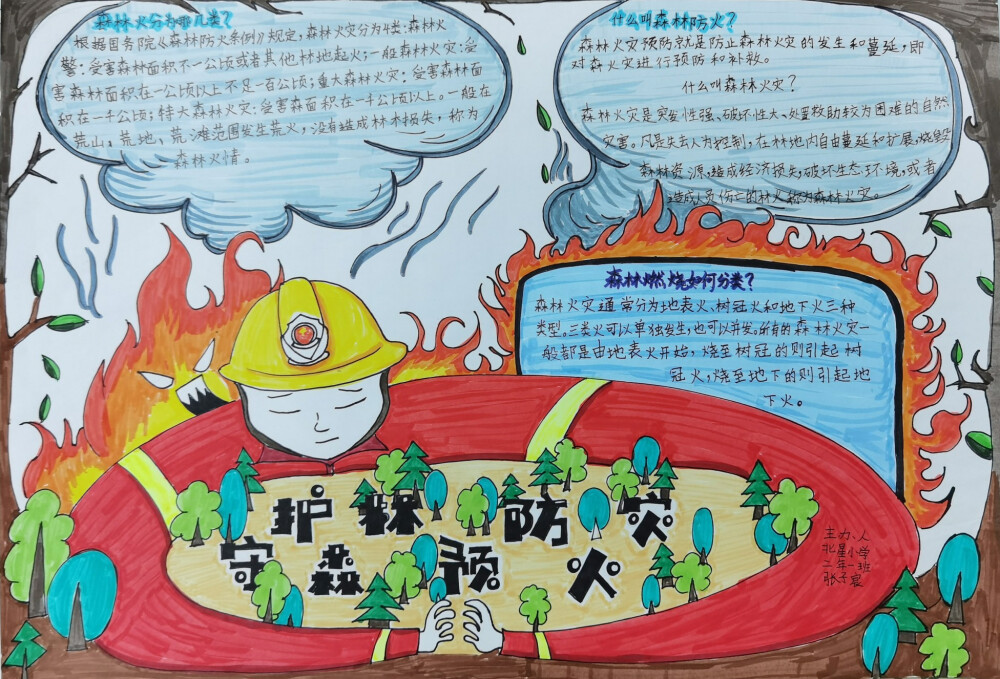 森林火分为哪几类?
根据国务院《森林防火条例》规定,森林火灾分为4类:森林火
警:受害森林面积不一公顷或者其他林地起火;一般森林火灾:受
害森林面积在一公顷以上不足一百公顷;重大森林火灾:受害森林面
积在一千公顷;特大森林火灾:受害森面积在一千公顷以上。一般在
荒山、荒地、荒滩范围发生荒火,没有造成林木损失,称为
森林火情。
什么叫森林防火?
森林火灾预防就是防止森林火灾的发生和蔓延,即
对森火灾进行预防和补救。
什么叫森林火灾?
森林火灾是突发性强、破坏性大、处置救助较为困难的自然
灾害。凡是失去人为控制,在林地内自由蔓延和扩展,烧毁
森林资源,造成经济损失,破坏生态环境,或者
造成人员伤亡的林火称为森林火灾。
森林燃烧如何分类?
森林火灾通常分为地表火、树冠火和地下火三种
类型。三类火可以单独发生,也可以并发。所有的森林火灾一
般都是由地表火开始,烧至树冠的则引起树
冠火,烧至地下的则引起地
下火。
护林防灾
守森预火
主办人
北星小学
二年一班
张子宸